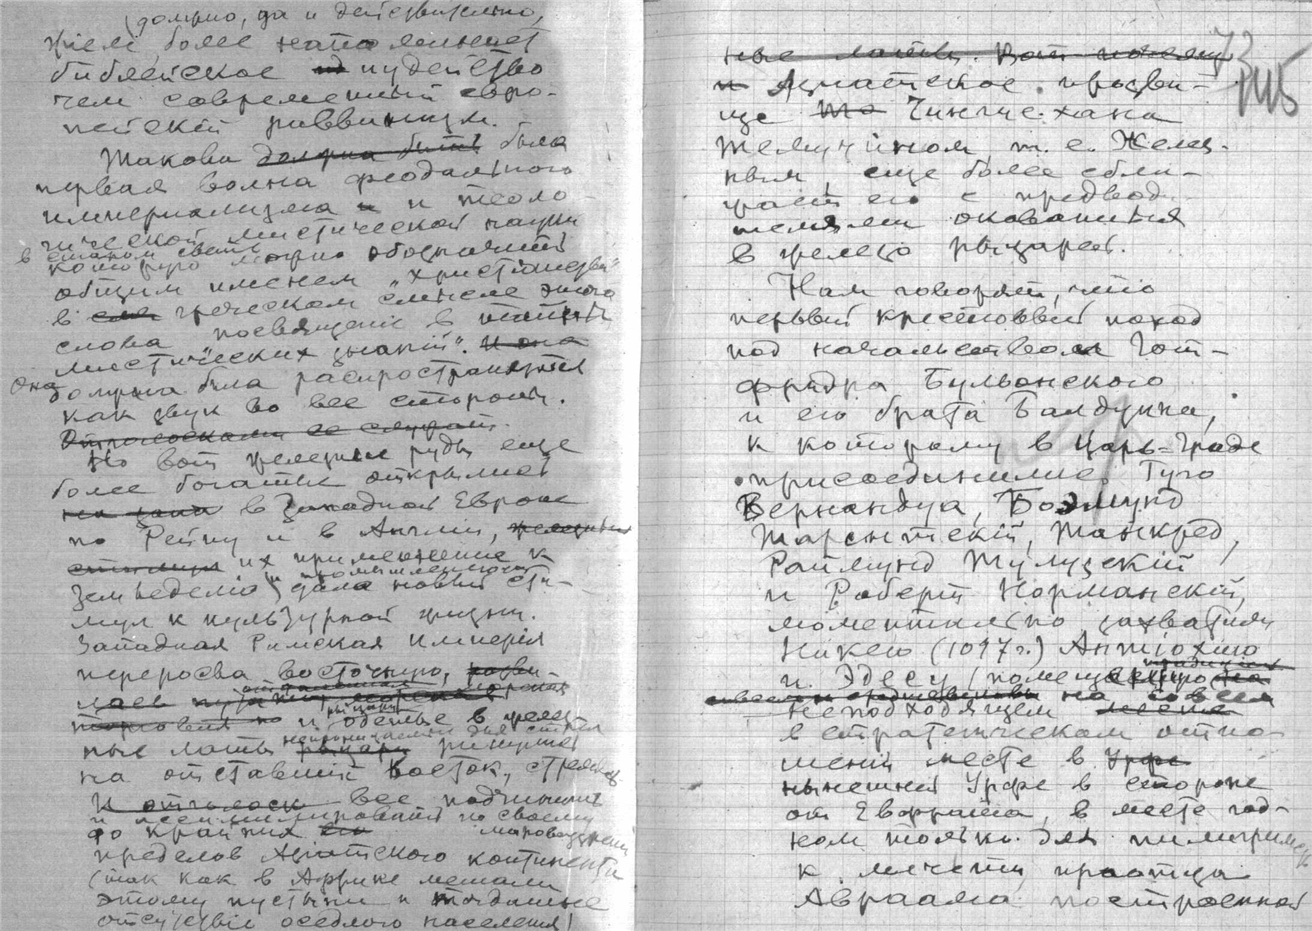 (должно, да и действительно,
более напоминает
библейское иудейство
чем современный евро-
пейский раввинизм.
Такова должна быть была
первая волна феодального
империализма и и теоло-
гической мистической науки
в старом смысле
которую можно обозначить
общим именем „христианства"
в греческом смысле этого
слова посвящения в тайны
мистических знаний". И она
Она должна была распространяться
как звук во все стороны.
Но вот железные руды еще
более богатые открылись
в Западной Европе
по Рейну и в Англии, железные
их применение к
земледелию и промышленности дало новый сти-
мул к культурной жизни.
Западная Римская Империя
переросла восточную,
и рыцари одетые в желез-
ные латы непроницаемые для стрел ринулись
на отставший Восток, стремясь
все подчинить
и ассимилировать по своему
до крайних мировоззрению
пределов Азиатского континента
(так как в Африке мешали
этому пустыни и тогдашнее
отсутствие оседлого населения)
73
ные латы. Вот почему
и Азиатское прозви-
ще Чингис-хана
Темучином т. е. Желез-
ным, еще более сбли-
жает его с предвод-
телями окованных
в железо рыцарей.
Нам говорят, что
первый крестовый поход
под начальством Гот-
фрида Бульонского
и его брата Балдуина,
к которому в Царь-Граде
присоединились Гуго
Вермандуа, Боэмунд
Тарентский, Танкред,
Раймунд Тулузский
и Роберт Норманский,
моментально захватили
Никею (1097 г.) Антиохию
и Эдесу (помещенную
на совсем
неподходящем месте
в стратегическом отно-
шении месте в Урфе
нынешней Урфе в стороне
от Евфрата, в месте год-
ном только для пилигримов
к мечети праотца
Авраама построенной